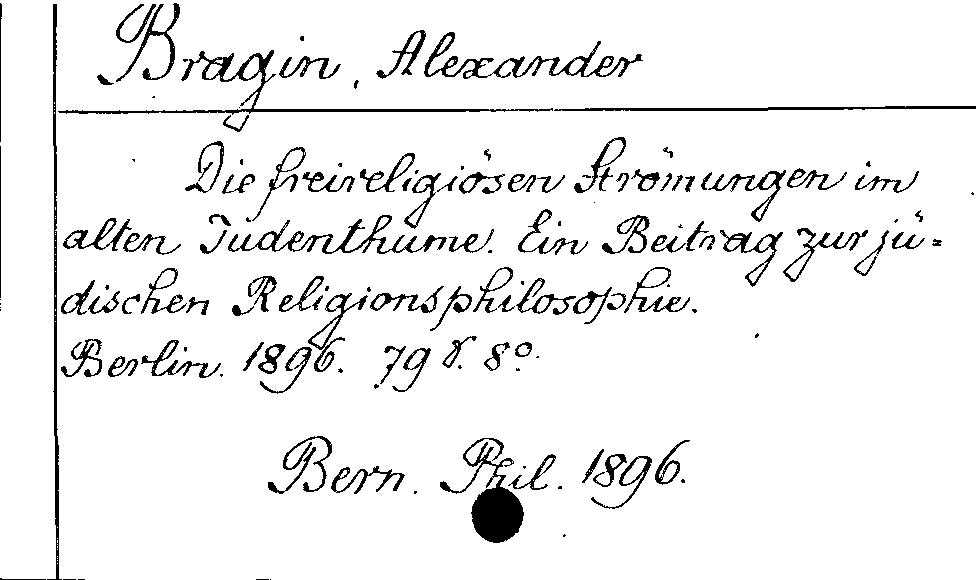 Bragin, Alexander
Die freireligiösen Strömungen im
alten Judenthume. Ein Beitrag zur jü-
dischen Religionsphilosophie.
Berlin. 1896. 79 S. 8°.
Bern. Phil. 1896.